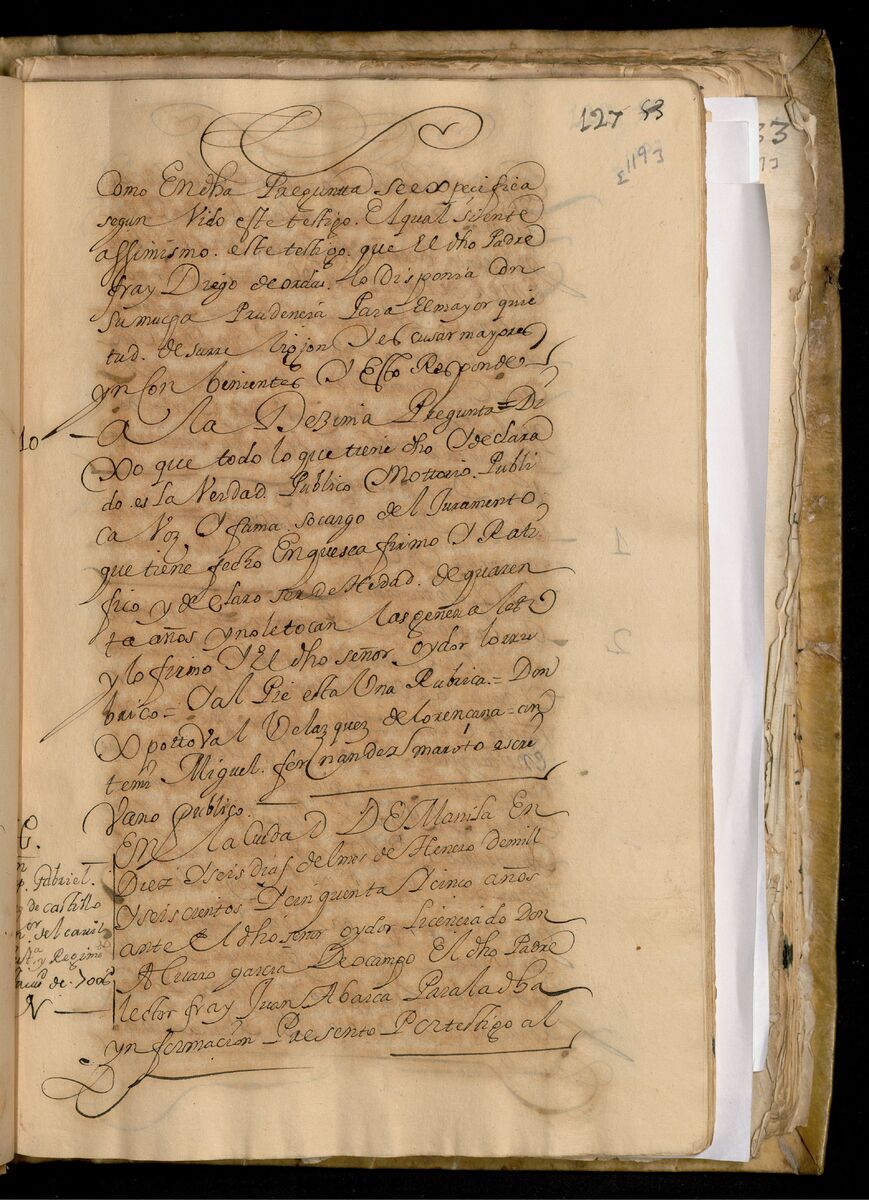 127 53
1193
Como En dha Pregunta se expecifica
segun Vido este testigo. El qual siente
assimismo. este testigo. que El dho Padre
fray Diego de ordas. lo disponia Con
su mucha Prudencia Para El mayor quie
tud. de su rre ligion Y es cusar mayores
yn Con benientes Y Esto Responde
10
A la Dezima Pregunta = Di
xo que todo lo que tiene dho Y declara
do. es la Verdad. Publico Notorio. Publi
ca Voz Y fama. so cargo del Juramento
que tiene fecho En que se a firmo Y Rati
fico y de Claro ser de Hedad. de quaren
ta años y no le tocan las generales
y lo firmo Y El dho señor oydor lo rru
brico = Y al Pie esta Una Rubrica. = Don
Xptoval Velazquez de lorençana = an
temi Miguel. fernandez maroto escri
Vano publico.
En la Ciudad DE Manila En
Diez Y seis dias del mes de Henero de mill
Y seis cientos Y cinquenta Y cinco años
ante El dho señor oydor licenciado Don
Alvaro garcia De ocampo El dho Padre
lector fray Juan Abarca Para la dha
yn formacion Presento Por testigo al
Gabriel.
de castillo
del cavil
y Regimi
N